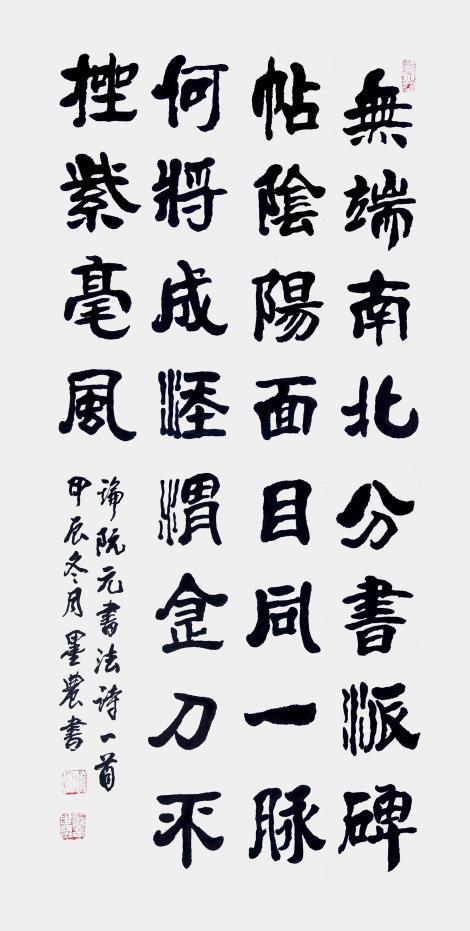 無端南北分書派碑
帖陰陽面目同一脈
何將成涇渭金刀不
紫毫風
論阮元書法詩一首
甲辰冬月墨農書